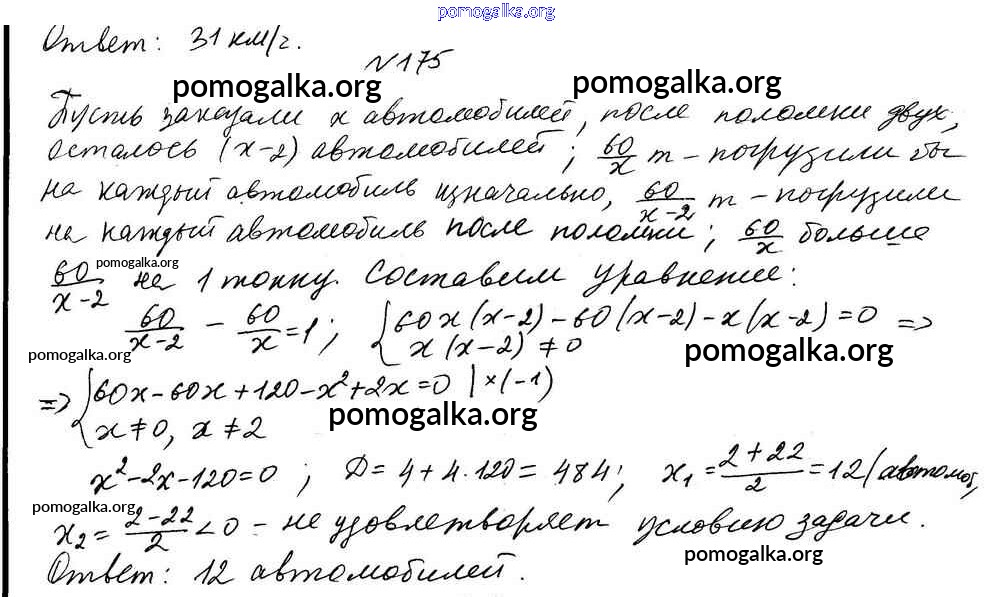 pomogalka.org
Ответ: 31 км/ч.
N175
pomogalka.org pomogalka.org
Пусть заказали x автомобилей, после поломки двух,
осталось (x-2) автомобилей; 60/x т - погрузили бы
на каждый автомобиль изначально, 60/(x-2) т - погрузили
на каждый автомобиль после поломки; 60/x больше
pomogalka.org
60/(x-2) на 1 тонну. Составим уравнение:
60/(x-2) - 60/x = 1; { 60x(x-2) - 60(x-2) - x(x-2) = 0 =>
x(x-2) ≠ 0
pomogalka.org pomogalka.org
=> { 60x - 60x + 120 - x² + 2x = 0 | ×(-1)
pomogalka.org
x ≠ 0, x ≠ 2
x² - 2x - 120 = 0; D = 4 + 4·120 = 484; x₁ = (2+22)/2 = 12 (автомоб,
pomogalka.org
x₂ = (2-22)/2 < 0 - не удовлетворяет условию задачи.
pomogalka.org
Ответ: 12 автомобилей.